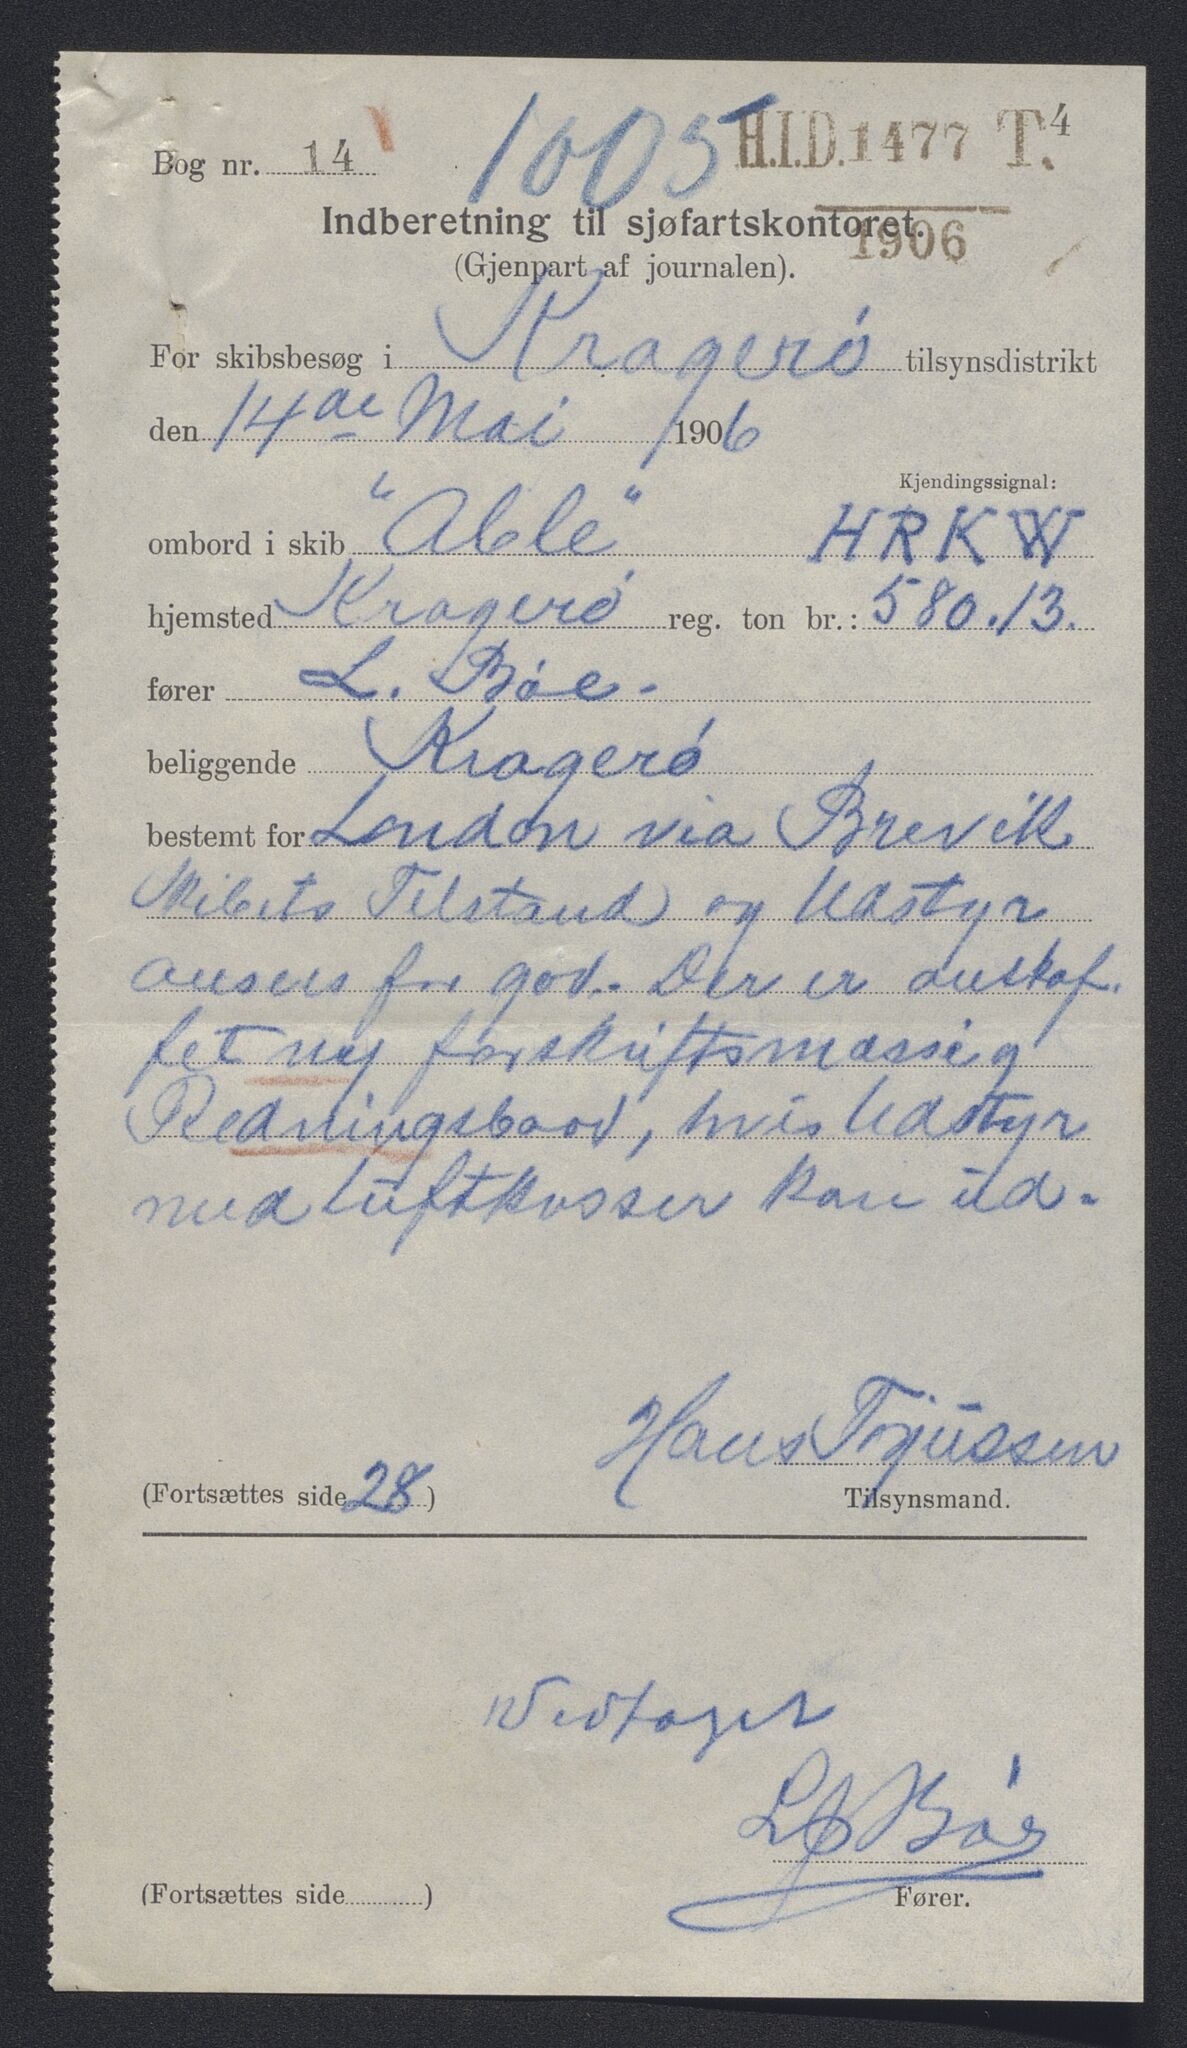 1005 H.I.D. 1477 T.4
Bog nr. 14
1906
Indberetning til sjøfartskontoret.
(Gjenpart af journalen).
For skibsbesøg i Kragerø tilsynsdistrikt
den 14de Mai 1906
Kjendingssignal:
ombord i skib "Able" HRKW
hjemsted Kragerø reg. ton br.: 580.13.
fører L. Bøe.
beliggende Kragerø
bestemt for London via Brevik
Skibets Tilstand og Udstyr
ansees for god. Der er anskaf-
fet ny forskriftsmæssig
Redningsbaad, hvis Udstyr
med luftkasser kan ud-
Hans Tojussen
(Fortsættes side 28) Tilsynsmand.
Vedtaget
L Bøe
(Fortsættes side ) Fører.